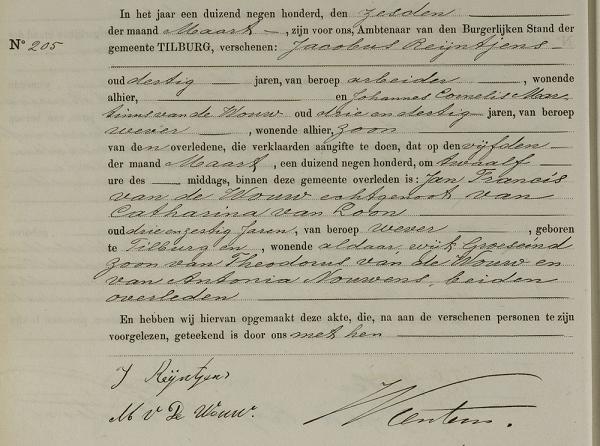 In het jaar een duizend negen honderd, den zesden
der maand Maart, zijn voor ons, Ambtenaar van den Burgerlijken Stand der
No 205
gemeente TILBURG, verschenen: Jacobus Reijntjens
oud dertig jaren, van beroep arbeider, wonende
alhier, en Johannes Cornelis Mar-
tinus van de Wouw oud drie en dertig jaren, van beroep
wever, wonende alhier, zoon
van den overledene, die verklaarden aangifte te doen, dat op den vijfden
der maand Maart, een duizend negen honderd, om twaalf
ure des middags, binnen deze gemeente overleden is: Jan Francis
van de Wouw echtgenoot van
Catharina van Loon
oud drie en zestig jaren, van beroep wever, geboren
te Tilburg en, wonende aldaar, wijk Groeseind
zoon van Theodorus van de Wouw en
van Antonia Nouwens, beiden
overleden
En hebben wij hiervan opgemaakt deze akte, die, na aan de verschenen personen te zijn
voorgelezen, geteekend is door ons met hen
J Reijntjens
M v De Wouw.